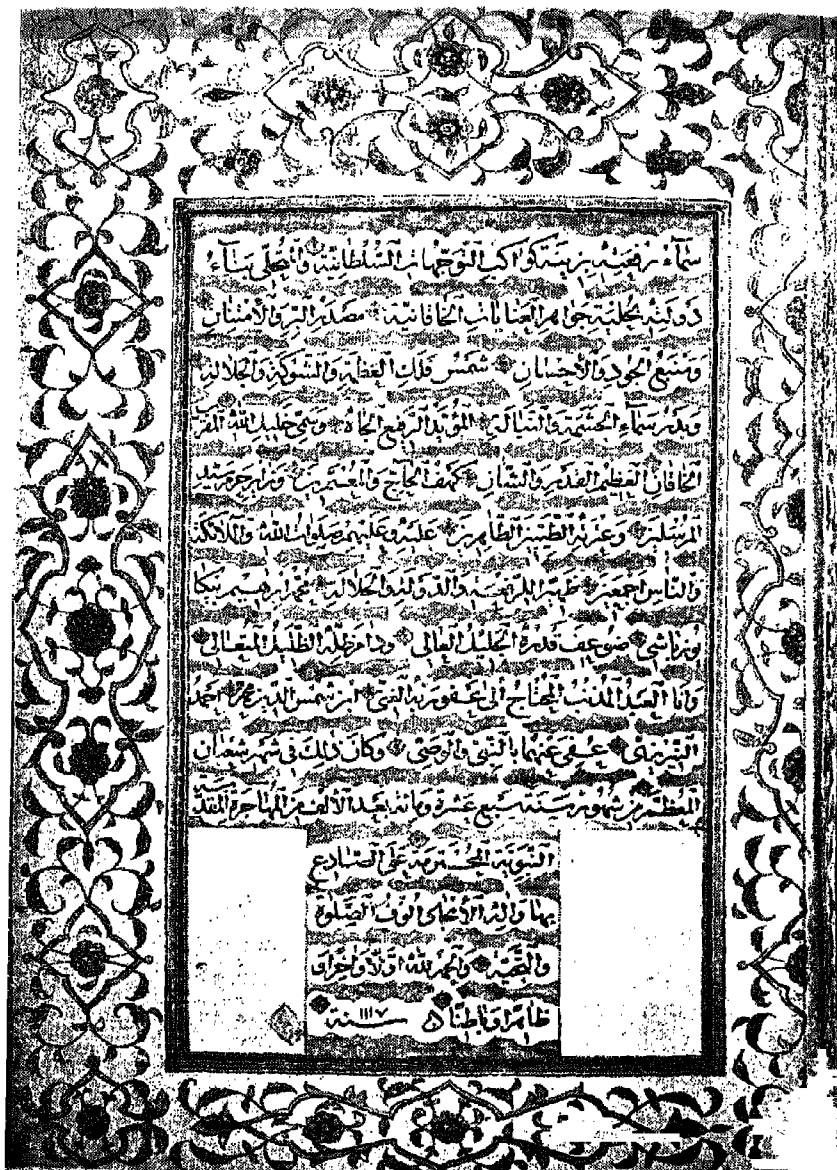 سماء رفعته بزينة كواكب التوجهات السلطانية والمحلى بناء
دولته بحلية جواهر العنايات الخاقانية مصدر البر والامتنان
ومنبع الجود والاحسان شمس فلك العظمة والشوكة والجلالة
وبدر سماء الحشمة والنبالة المؤيد الرفيع الجاه وسمي خليل الله المقرب
الخاقان العظيم القدر والشان كهف الحاج والمعتمرين وزائر حرم سيد
المرسلين وعترته الطيبين الطاهرين عليه وعليهم صلوات الله والملائكة
والناس اجمعين ظهيرا للرفعة والدولة والجلالة محمد ابرهيم بيكا
يوزباشي ضوعف قدره الجليل العالي ودام ظله الظليل المتعالي
وانا العبد المذنب المحتاج الى عفو ربه الغني ابن شمس الدين محمد احمد
التبريزي عفي عنهما بالنبي والوصي وكان ذلك في شهر شعبان
المعظم من شهور سنة سبع عشرة ومائة بعد الألف من المهاجرة المقدسة
النبوية المحمدية على الصادع
بها واله الأعلى الوف الصلوة
والتحية والحمد لله اولا واخرا و
ظاهرا وباطنا سنة ١١١٧